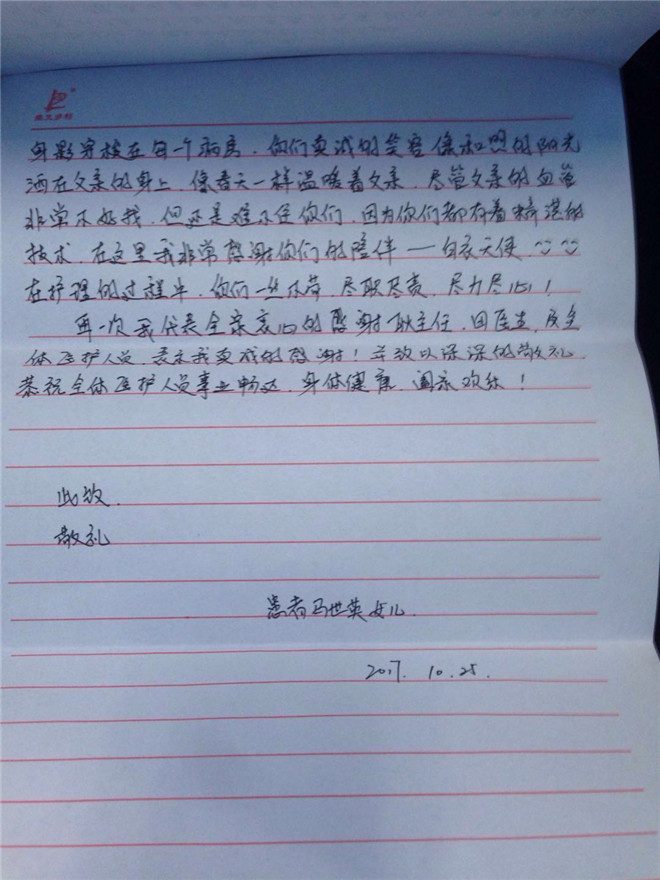 身影穿梭在每个病房，你们真诚的笑容像和煦的阳光
洒在父亲的身上，像春天一样温暖着父亲，尽管父亲的血管
非常不好找，但还是难不住你们，因为你们都有着精湛的
技术，在这里我非常感谢你们的陪伴——白衣天使
在护理的过程中，你们一丝不苟，尽职尽责，尽力尽心！
再一次我代表全家衷心的感谢耿主任，田医生，及全
体医护人员，表示我真诚的感谢！并致以深深的敬礼
恭祝全体医护人员事业畅达，身体健康，阖家欢乐！
此致
敬礼
患者马世英女儿
2017. 10. 25.